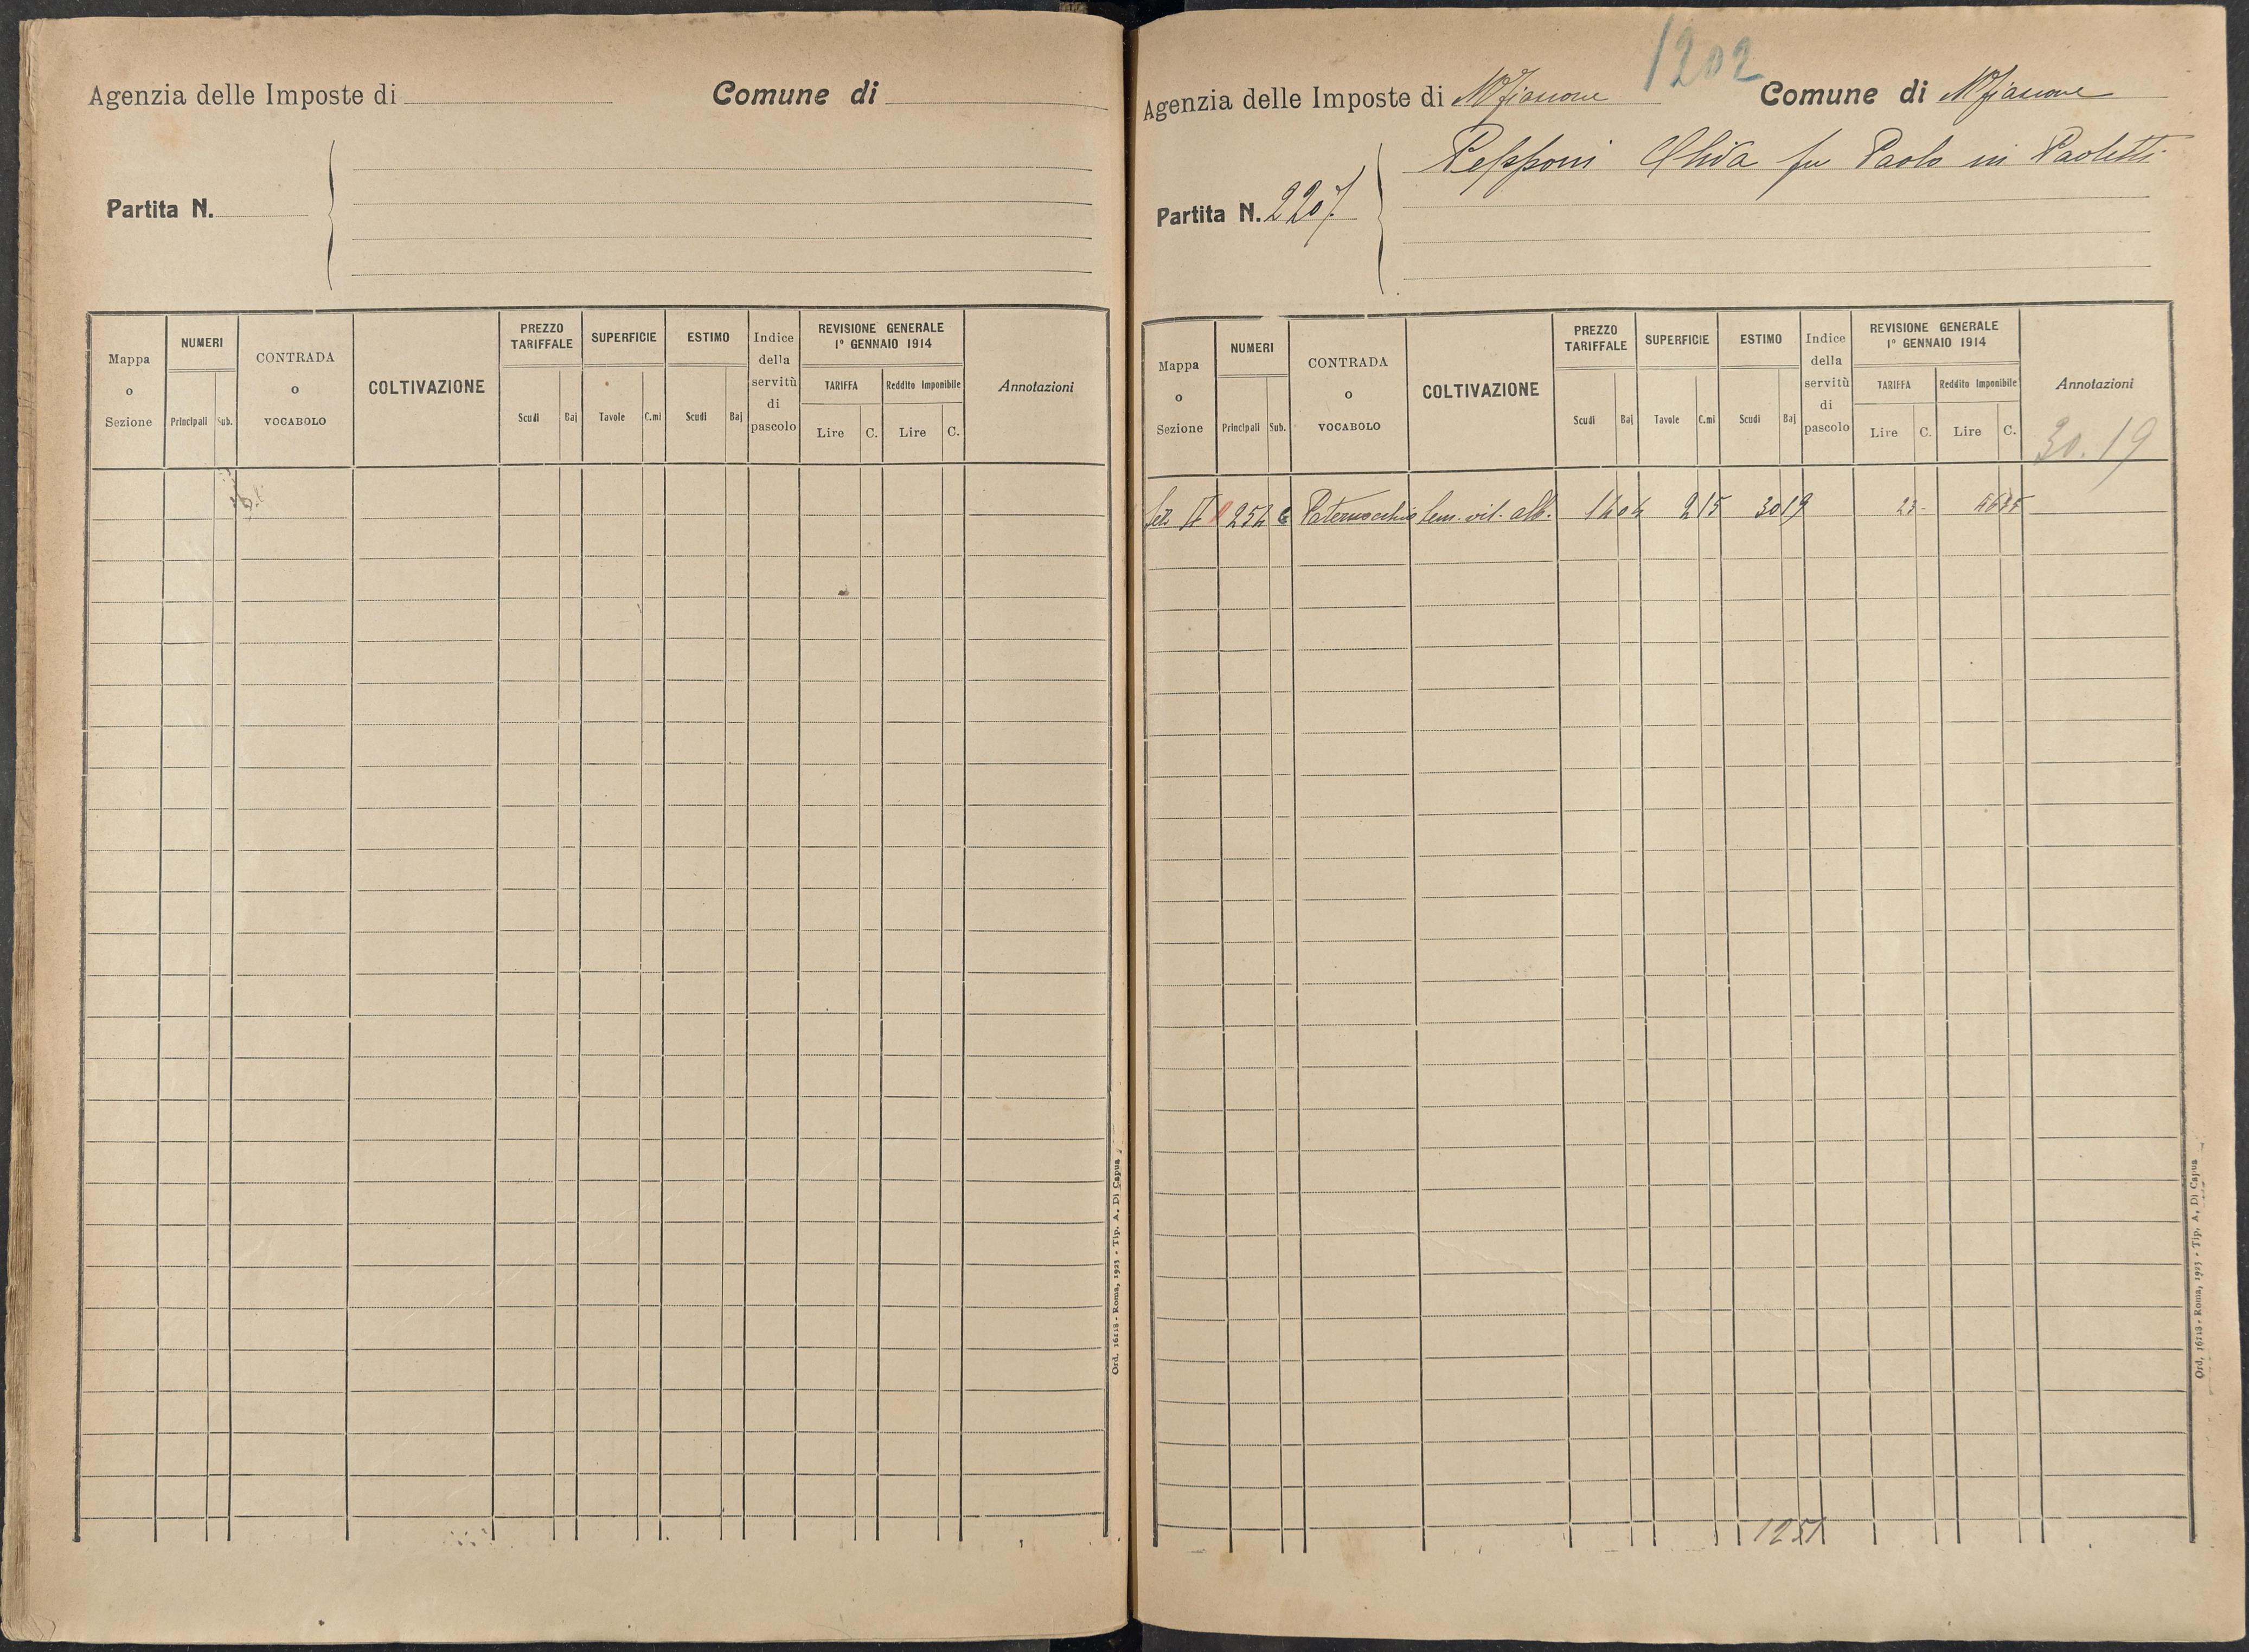 Agenzia delle Imposte di
Comune di
Partita N.
Mappa o Sezione
NUMERI
Principali
Sub.
CONTRADA o VOCABOLO
COLTIVAZIONE
PREZZO TARIFFALE
Scudi
Baj
SUPERFICIE
Tavole
C.mi
ESTIMO
Scudi
Baj
Indice della servitù di pascolo
REVISIONE GENERALE
1° GENNAIO 1914
TARIFFA
Reddito Imponibile
Lire
C.
Lire
C.
Annotazioni
Ord. 16118 - Roma, 1923 - Tip. A. Di Capua
1202
Agenzia delle Imposte di Mfiascone
Comune di Mfiascone
Partita N. 2207
Pepponi Elida fu Paolo in Paoletti
Mappa o Sezione
NUMERI
Principali
Sub.
CONTRADA o VOCABOLO
COLTIVAZIONE
PREZZO TARIFFALE
Scudi
Baj
SUPERFICIE
Tavole
C.mi
ESTIMO
Scudi
Baj
Indice della servitù di pascolo
REVISIONE GENERALE
1° GENNAIO 1914
TARIFFA
Reddito Imponibile
Lire
C.
Lire
C.
Annotazioni
30.19
Sez. 254 Paternocchio Sem. vit. alb. 14 04 2 15 30 19 23 -
1251
Ord. 16118 - Roma, 1923 - Tip. A. Di Capua